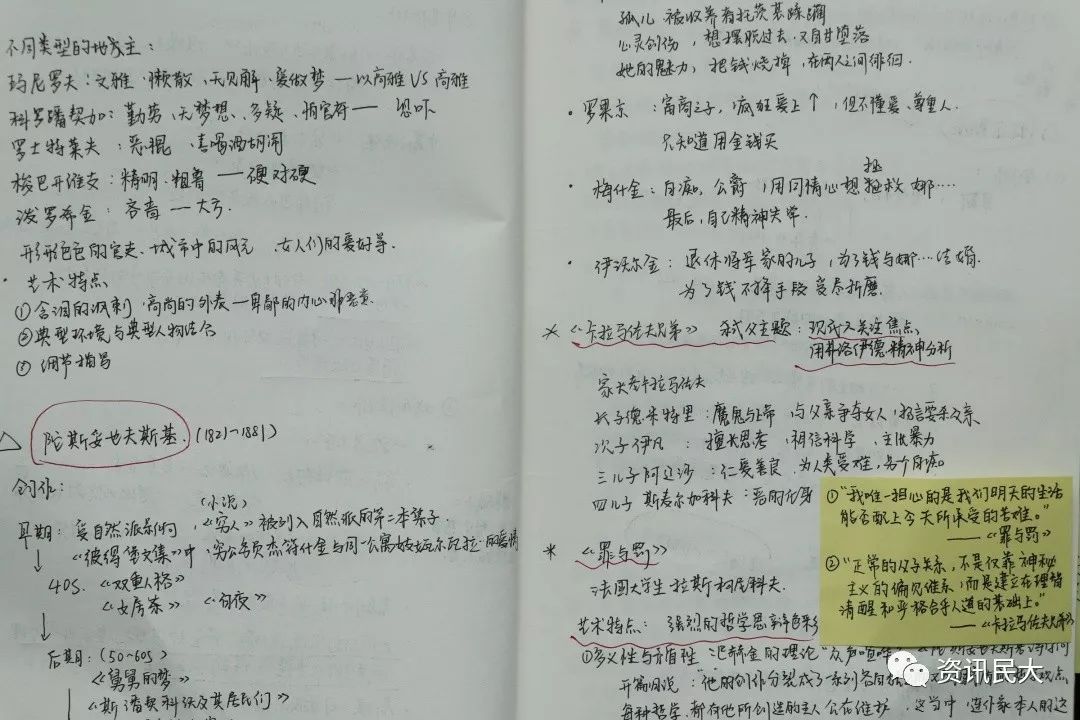 不同类型的地主：
玛尼罗夫：文雅、懒散、无见解、爱做梦 — 以高雅 VS 高雅
科罗潘契加：勤劳、无梦想、多疑、怕官府 — 恐吓
罗士特莱夫：恶棍、喜喝酒胡闹
梭巴开维支：精明、粗鲁 — 硬对硬
泼罗希金：吝啬 — 大方.
形形色色的官吏、城市中的风光、女人们的爱好等.
· 艺术特点
①含泪的讽刺，高尚的外表—卑鄙的内心那
②典型环境与典型人物结合
③细节描写
△ 陀斯妥也夫斯基.(1821~1881)
创作：
(小说)
早期：受自然派影响，《穷人》被列入自然派的第二本集子.
《彼得堡文集》中，穷公务员杰符什金与同一公寓姑娘瓦尔瓦拉·的爱情
↓ 40S. 《双重人格》
《女房东》 《白夜》
↓
后期：(50~60S)
《舅舅的梦》
《斯潘契科沃及其居民们》
孤儿 被收养者托茨基蹂躏
心灵创伤，想摆脱过去，又自甘堕落
她的魅力，把钱烧掉，在两人之间徘徊.
· 罗果京：富商之子，疯狂爱上↑，但不懂爱、尊重人.
只知道用金钱买
拯
· 梅什金：白痴，公爵，用同情心想拯救 娜….
最后，自己精神失常.
· 伊沃尔金：退休将军家的儿子，为了钱与娜…结婚.
为了钱不择手段受尽折磨.
* 《卡拉马佐夫兄弟》 弑父主题：现代人关注焦点
用弗洛伊德精神分析
家长老卡拉马佐夫
长子德米特里：魔鬼与上帝 与父亲争夺女人，扬言要杀父亲
次子伊凡：擅长思考，相信科学，主张暴力
三儿子阿辽沙：仁爱善良，为人类受难，
四儿子 斯麦尔加科夫：恶的化身
* 《罪与罚》
法国大学生拉斯柯尼科夫.
艺术特点：强烈的哲学思辨色彩
①多义性与矛盾性 巴赫金的理论"众声喧哗"《陀思妥也夫斯基诗学问
开篇便说："他的创作分裂成了一系列各自独 对 点
每种哲学，都有他所创造的主人公在维护，这当中，连作家本人的这
①"我唯一担心的是我们明天的生活
能否配上今天所承受的苦难。"
——《罪与罚》
②"正常的父子关系，不是仅靠神秘
主义的偏见维系，而是建立在理智
清醒和严格合乎人道的基础上。"
——《卡拉马佐夫兄弟》
资讯民大